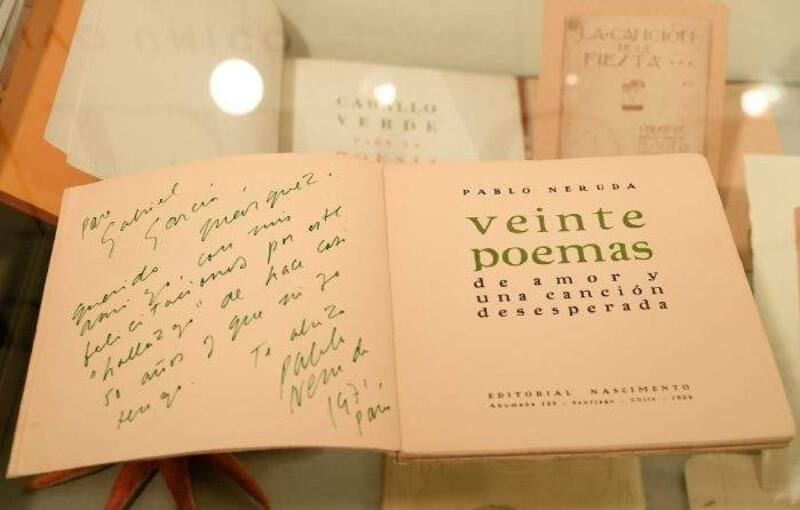 CABALLO
VERDE
PARA LA
POESIA
LA·CANCIÓN
DE LA
FIESTA···
para
Gabriel
García Márquez,
querido
amigo, con mis
felicitaciones por este
"hallazgo" de hace casi
50 años y que ni yo
tengo. Te abraza
Pablo
Neruda
1971,
PABLO NERUDA
veinte
poemas
de amor y
una canción
desesperada
EDITORIAL NASCIMENTO
Ahumada 125 - Santiago - Chile - 1924